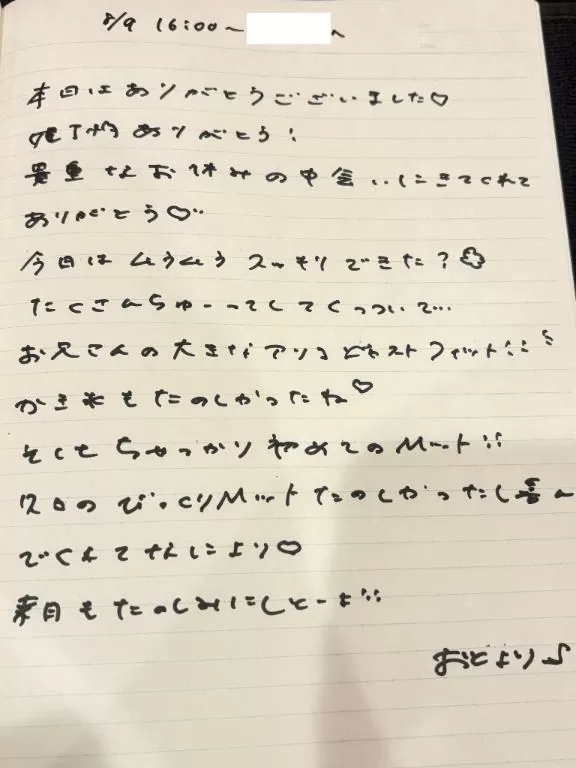 8/9 16:00〜 へ
本日はありがとうございました♡
ありがとう!
貴重なお休みの中会いにきてくれて
ありがとう♡
今日はムラムラスッキリできた?
たくさんちゅーってしてくっついて…
お兄さんの大きなアソコとベストフィット!!
かき氷もたのしかったね♡
そしてちゃっかり初めてのMット!!
プロのびっくりMットたのしかったし喜ん
でくれてなにより♡
来月もたのしみにしとーよ!!
おとより♪